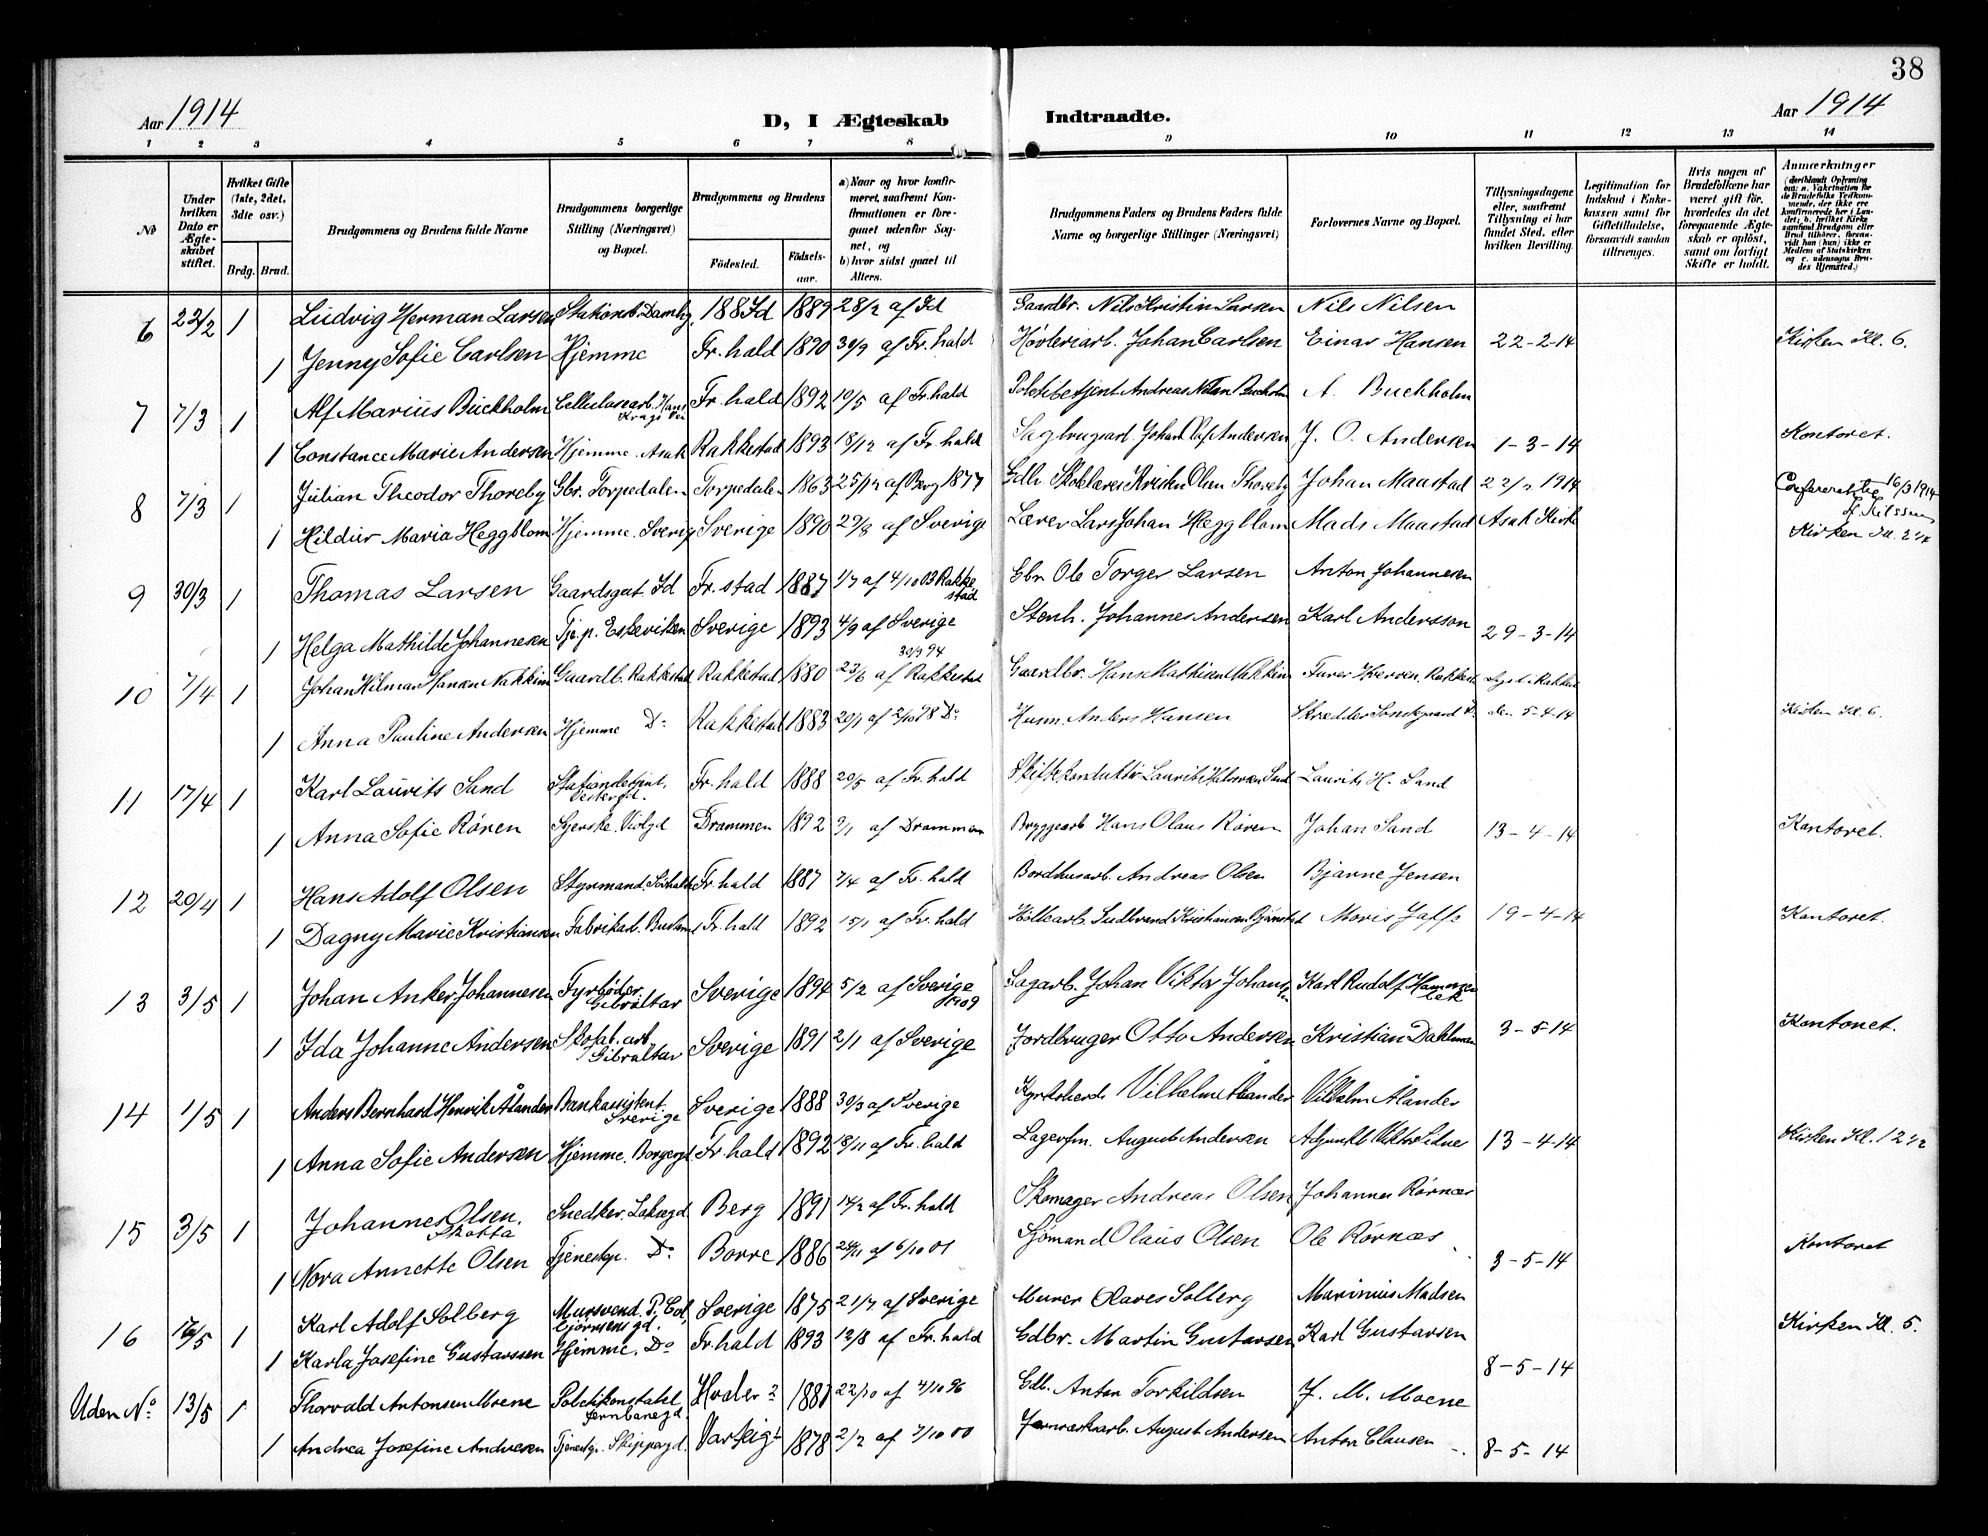 38
Aar 1914
D, I Ægteskab Indtraadte.
Aar 1914
1 2 3 4 5 6 7 8 9 10 11 12 13 14
No
Under hvilken Dato er Ægteskabet stiftet.
Hvilket Gifte (1ste, 2det, 3die osv.)
Brdg. Brud.
Brudgommens og Brudens fulde Navne
Brudgommens borgerlige Stilling (Næringsvei) og Bopæl.
Brudgommens og Brudens
Fødested. Fødselsaar.
a) Naar og hvor konfirmeret, saafremt Konfirmationen er foregaaet udenfor Sognet, og
b) hvor sidst gaaet til Alters.
Brudgommens Faders og Brudens Faders fulde Navne og borgerlige Stillinger (Næringsvei)
Forlovernes Navne og Bopæl.
Tillysningsdagene eller, saafremt Tillysning ei har fundet Sted, efter hvilken Bevilling.
Legitimation for Indskud i Enkekassen samt for Giftetilladelse, forsaavidt saadan tiltrænges.
Hvis nogen af Brudefolkene har været gift før, hvorledes da det foregaaende Ægteskab er opløst, samt om lovligt Skifte er holdt.
Anmærkninger
6 22/2 1 Ludvig Herman Larsen Id 1889 28/2 af Id Gaardbr. Nils Kristin Larsen Nils Nilsen
1 Jenny Sofie Carlsen Hjemme Fr. hald 1890 30/9 af Fr. hald Høvleriarb. Johan Carlsen Einar Hansen 22-2-14 Kirken Kl. 6.
7 7/3 1 Alf Marius Buckholm Cellulosearb. Hans Fr. hald 1892 10/5 af Fr. hald Politibetjent Andreas A. Buckholm
1 Constance Marie Andersen Hjemme. Asak Rakkestad 1893 18/12 af Fr. hald Sagbrugsarb. Johan Olaf Andersen J. O. Andersen 1-3-14 Kontoret.
8 7/3 1 Julian Theodor Thoreby Gbr. Torpedalen Torpedalen 1863 25/12 af Berg 1877 Gdbr Kristen Olsen Thoreby Johan Maastad 22/2 1914 16/3 1914
1 Hildur Maria Heggblom Hjemme. Sverig Sverige 1890 29/8 af Sverige Lærer Lars Johan Heggblom Mads Maastad Asak Kirke Kirken Kl. 2 1/4
9 30/3 1 Thomas Larsen Gaardsgut Id Fr. stad 1887 1/7 af 4/10 03 Rakkestad Gbr Ole Torger Larsen Anton Johannesen
1 Helga Mathilde Johannesen Tje. p. Eskeviken Sverige 1893 4/9 af Sverige Stenh. Johannes Andersen Karl Andersson 29-3-14
10 7/4 1 Johan Hilmar Hansen Nakkim Gaardb. Rakkestad Rakkestad 1880 Rakkestad Gaardbr. Hans Mathisen Nakkim
1 Anna Pauline Andersen Hjemme Do Rakkestad 1883 20/1 af 2/10 98 Do Husm. Anders Hansen den 5-4-14 Kirken Kl. 6.
11 17/4 1 Karl Lauritz Sand Fr. hald 1888 20/5 af Fr. hald Lauritz H. Sand
1 Anna Sofie Røren Syerske. Violgd Drammen 1892 9/1 af Drammen Bryggearb Hans Olaus Røren Johan Sand 13-4-14 Kontoret.
12 20/4 1 Hans Adolf Olsen Styrmand. Fr. hald 1887 7/4 af Fr. hald Bordhusarb. Andreas Olsen Bjarne Jensen
1 Dagny Marie Kristiansen Fabrikarb. Fr. hald 1892 15/1 af Fr. hald Moris Jaffe 19-4-14 Kontoret.
13 3/5 1 Johan Anker Johannesen Fyrbøder Gibraltar Sverige 1894 5/2 af Sverige 1909 Sagarb. Johan Viktor Karl Rudolf
1 Ida Johanne Andersen Skofab. arb. Gibraltar Sverige 1891 2/1 af Sverige Jordbruger Otto Andersen Kristian Dahlman 3-5-14 Kontoret.
14 1/5 1 Anders Bernhard Henrik Ålander Bankassistent. Sverige Sverige 1888 30/3 af Sverige Vilhelm Ålander Vilhelm Ålander
1 Anna Sofie Andersen Hjemme. Borgergd Fr. hald 1892 18/11 af Fr. hald Lagerfm. August Andersen Adjunkt 13-4-14 Kirken Kl. 12 1/2
15 3/5 1 Johannes Olsen. Skotta Snedker. Berg 1891 14/2 af Fr. hald Skomager Andreas Olsen Johannes Rørnæs
1 Nora Annette Olsen Tjenestpi. Do Borre 1886 24/11 af 6/10 01 Sjømand Olaus Olsen Ole Rørnæs 3-5-14 Kontoret
16 1 Karl Adolf Solberg Mursvend. Sverige 1875 21/7 af Sverige Murer Solberg Marinius Madsen
1 Karla Josefine Gustavssen Hjemme. Do Fr. hald 1893 12/8 af Fr. hald Gdbr. Martin Gustavsen Karl Gustavsen 8-5-14 Kirken Kl. 5.
Uden No. 13/5 1 Thorvald Antonsen Moene Politikonstabel Jernbanegd. Hvaler 1887 22/10 af 4/10 96 Gdb. Anton Torkildsen J. M. Moene
1 Andrea Josefine Andresen Tjenestpi. Skippergd. Varteig 1878 2/2 af 7/10 00 August Andersen Anton Clausen 8-5-14